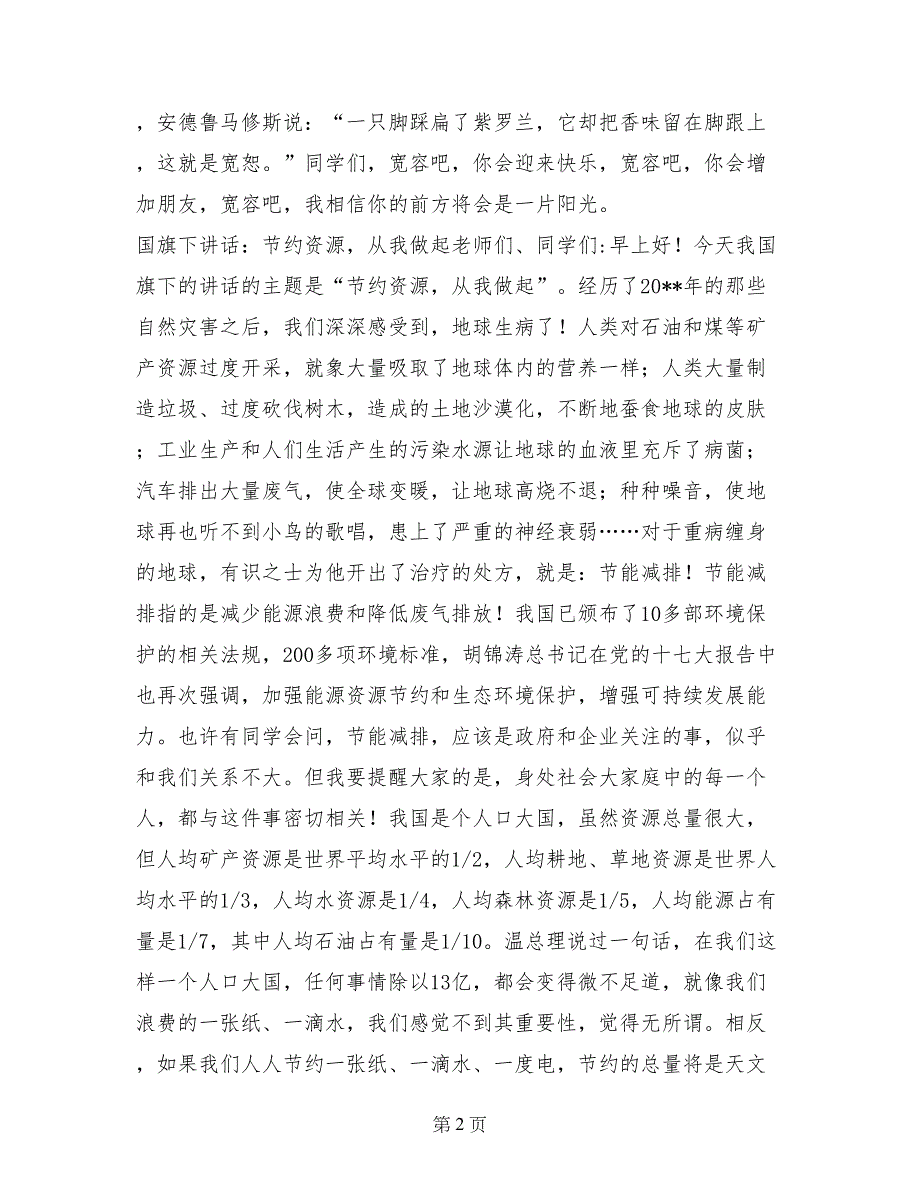 ，安德鲁马修斯说：“一只脚踩扁了紫罗兰，它却把香味留在脚跟上
，这就是宽恕。”同学们，宽容吧，你会迎来快乐，宽容吧，你会增
加朋友，宽容吧，我相信你的前方将会是一片阳光。
国旗下讲话：节约资源，从我做起老师们、同学们:早上好！今天我国
旗下的讲话的主题是“节约资源，从我做起”。经历了20**年的那些
自然灾害之后，我们深深感受到，地球生病了！人类对石油和煤等矿
产资源过度开采，就象大量吸取了地球体内的营养一样；人类大量制
造垃圾、过度砍伐树木，造成的土地沙漠化，不断地蚕食地球的皮肤
；工业生产和人们生活产生的污染水源让地球的血液里充斥了病菌；
汽车排出大量废气，使全球变暖，让地球高烧不退；种种噪音，使地
球再也听不到小鸟的歌唱，患上了严重的神经衰弱……对于重病缠身
的地球，有识之士为他开出了治疗的处方，就是：节能减排！节能减
排指的是减少能源浪费和降低废气排放！我国已颁布了10多部环境保
护的相关法规，200多项环境标准，胡锦涛总书记在党的十七大报告中
也再次强调，加强能源资源节约和生态环境保护，增强可持续发展能
力。也许有同学会问，节能减排，应该是政府和企业关注的事，似乎
和我们关系不大。但我要提醒大家的是，身处社会大家庭中的每一个
人，都与这件事密切相关！我国是个人口大国，虽然资源总量很大，
但人均矿产资源是世界平均水平的1/2，人均耕地、草地资源是世界人
均水平的1/3，人均水资源是1/4，人均森林资源是1/5，人均能源占有
量是1/7，其中人均石油占有量是1/10。温总理说过一句话，在我们这
样一个人口大国，任何事情除以13亿，都会变得微不足道，就像我们
浪费的一张纸、一滴水，我们感觉不到其重要性，觉得无所谓。相反
，如果我们人人节约一张纸、一滴水、一度电，节约的总量将是天文
第 2 页